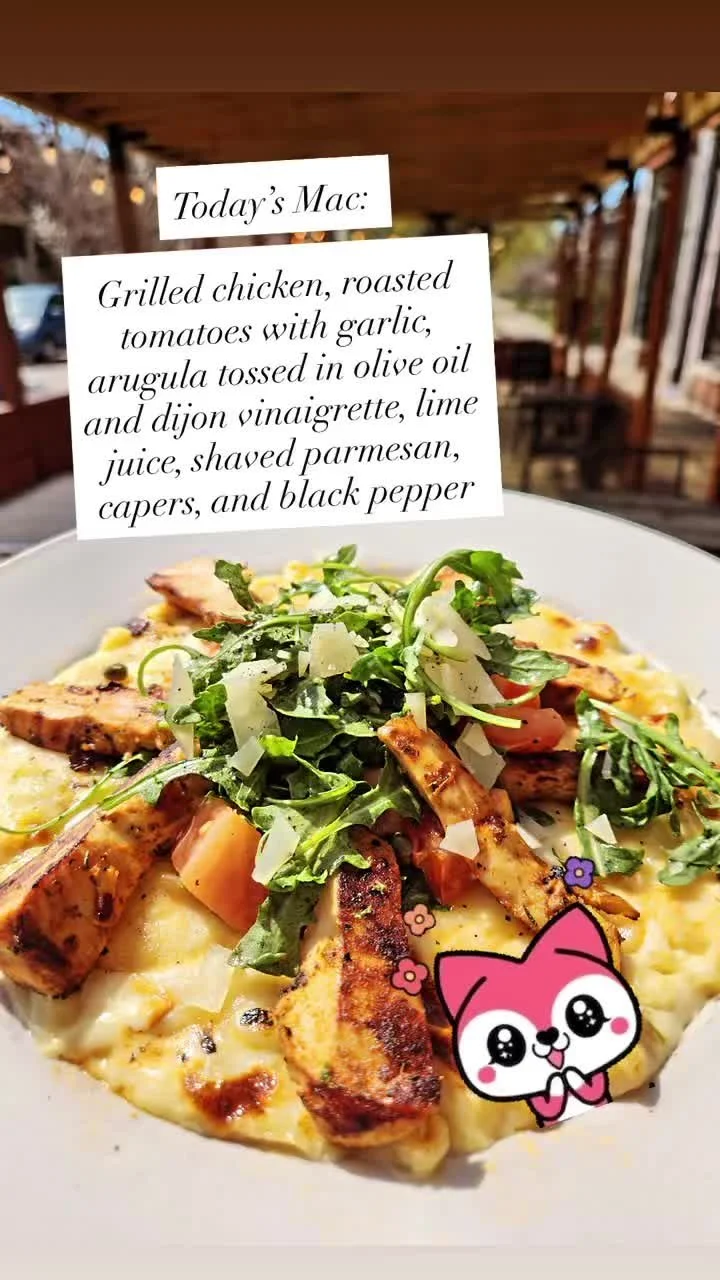 Today's Mac:
Grilled chicken, roasted
tomatoes with garlic,
arugula tossed in olive oil
and dijon vinaigrette, lime
juice, shaved parmesan,
capers, and black pepper